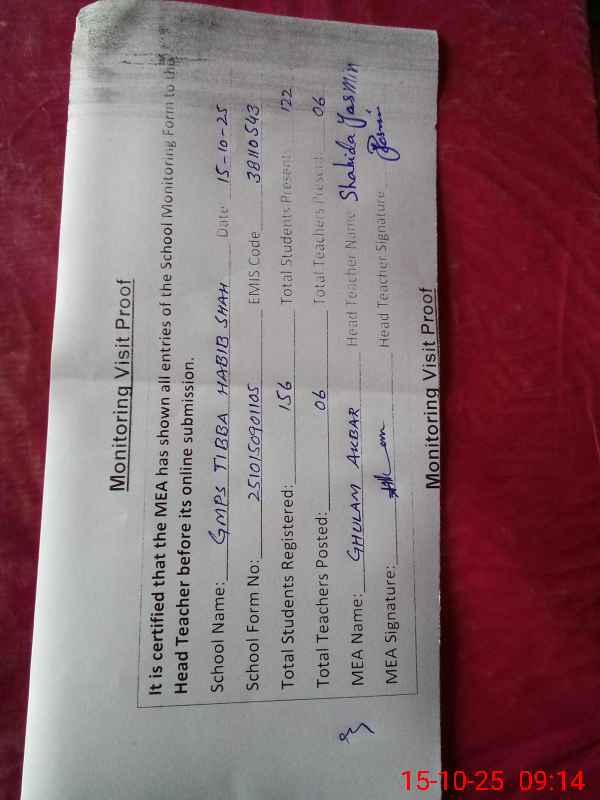 Monitoring Visit Proof
It is certified that the MEA has shown all entries of the School Monitoring Form to the
Head Teacher before its online submission.
School Name: GMPS TIBBA HABIB SHAH Date 15-10-25
School Form No: 2510150901105 EMIS Code 38110543
Total Students Registered: 156 Total Students Present: 122
Total Teachers Posted: 06 Total Teachers Present 06
MEA Name: GHULAM AKBAR Head Teacher Name Shahida Yasmin
MEA Signature: Head Teacher Signature
Monitoring Visit Proof
15-10-25 09:14